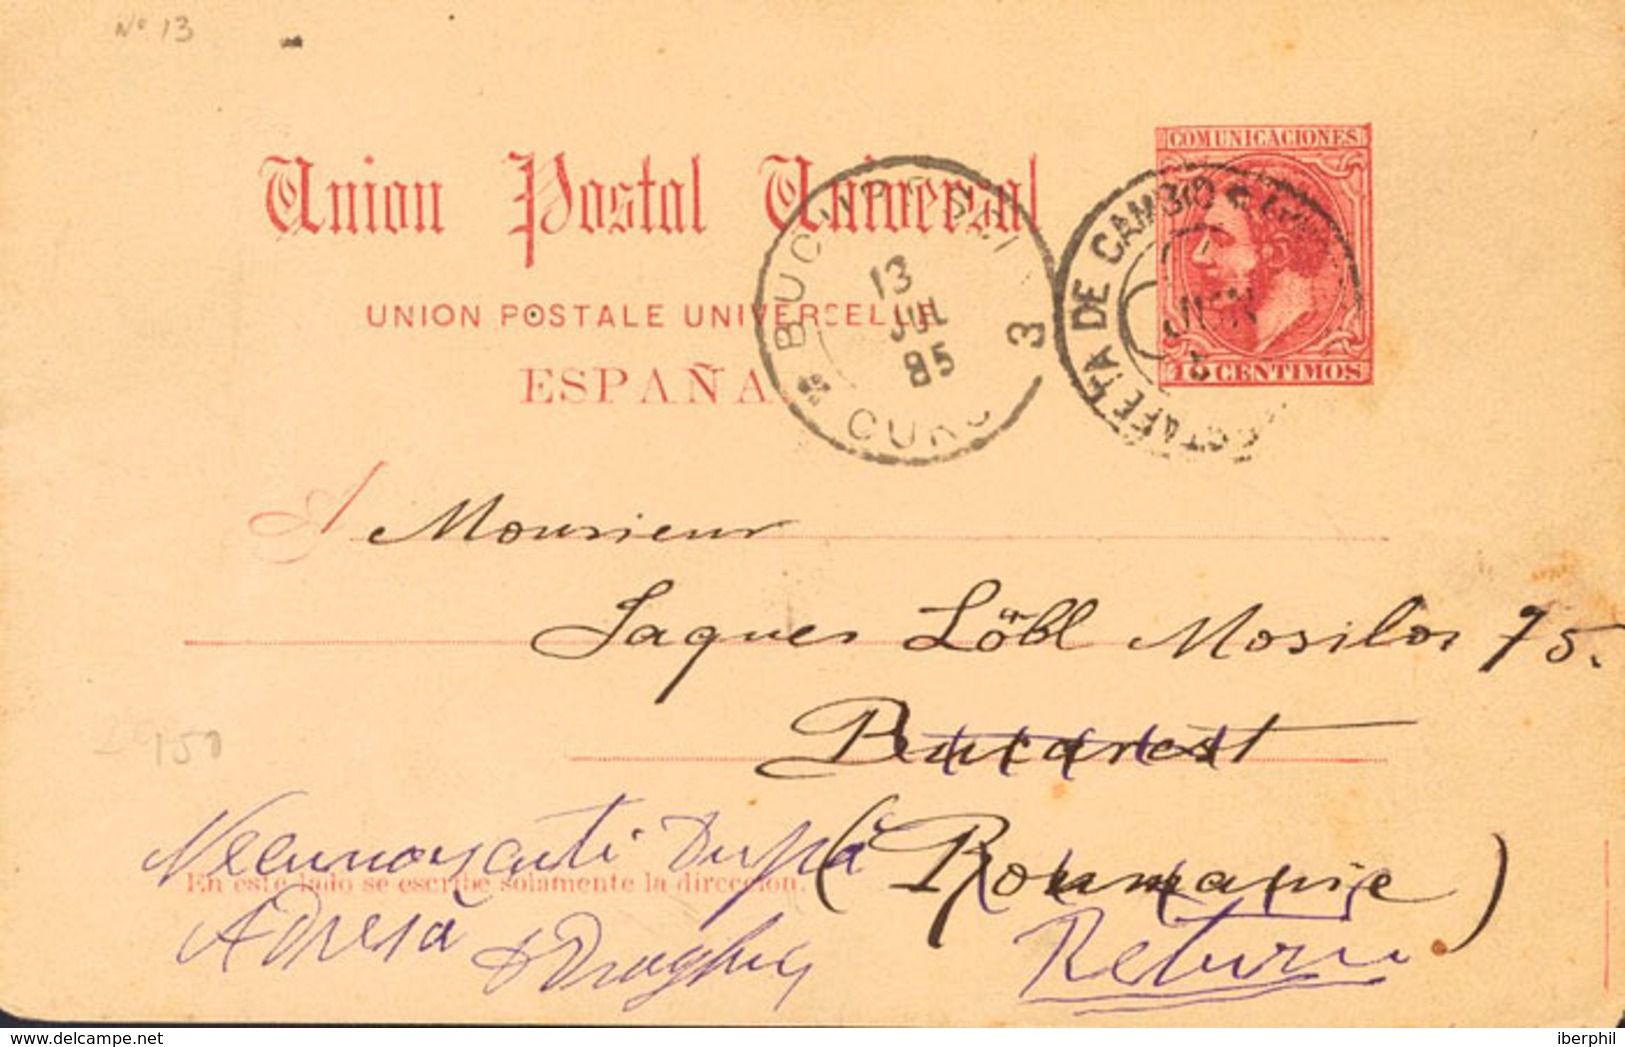 No 13
COMUNICACIONES
Union Postal Universal
UNION POSTALE UNIVERSELLE
ESPAÑA
BUCURESCI
13
JUL
85
3
CURS
ESTAFETA DE CAMBIO
JUN
10 CENTIMOS
A Monsieur
Jaques Löbl Mosilor 75.
Bucarest
(Roumanie)
150
Necunoscuti După
En este lado se escribe solamente la direccion.
Adresă
Return
delcampe.net
iberphil